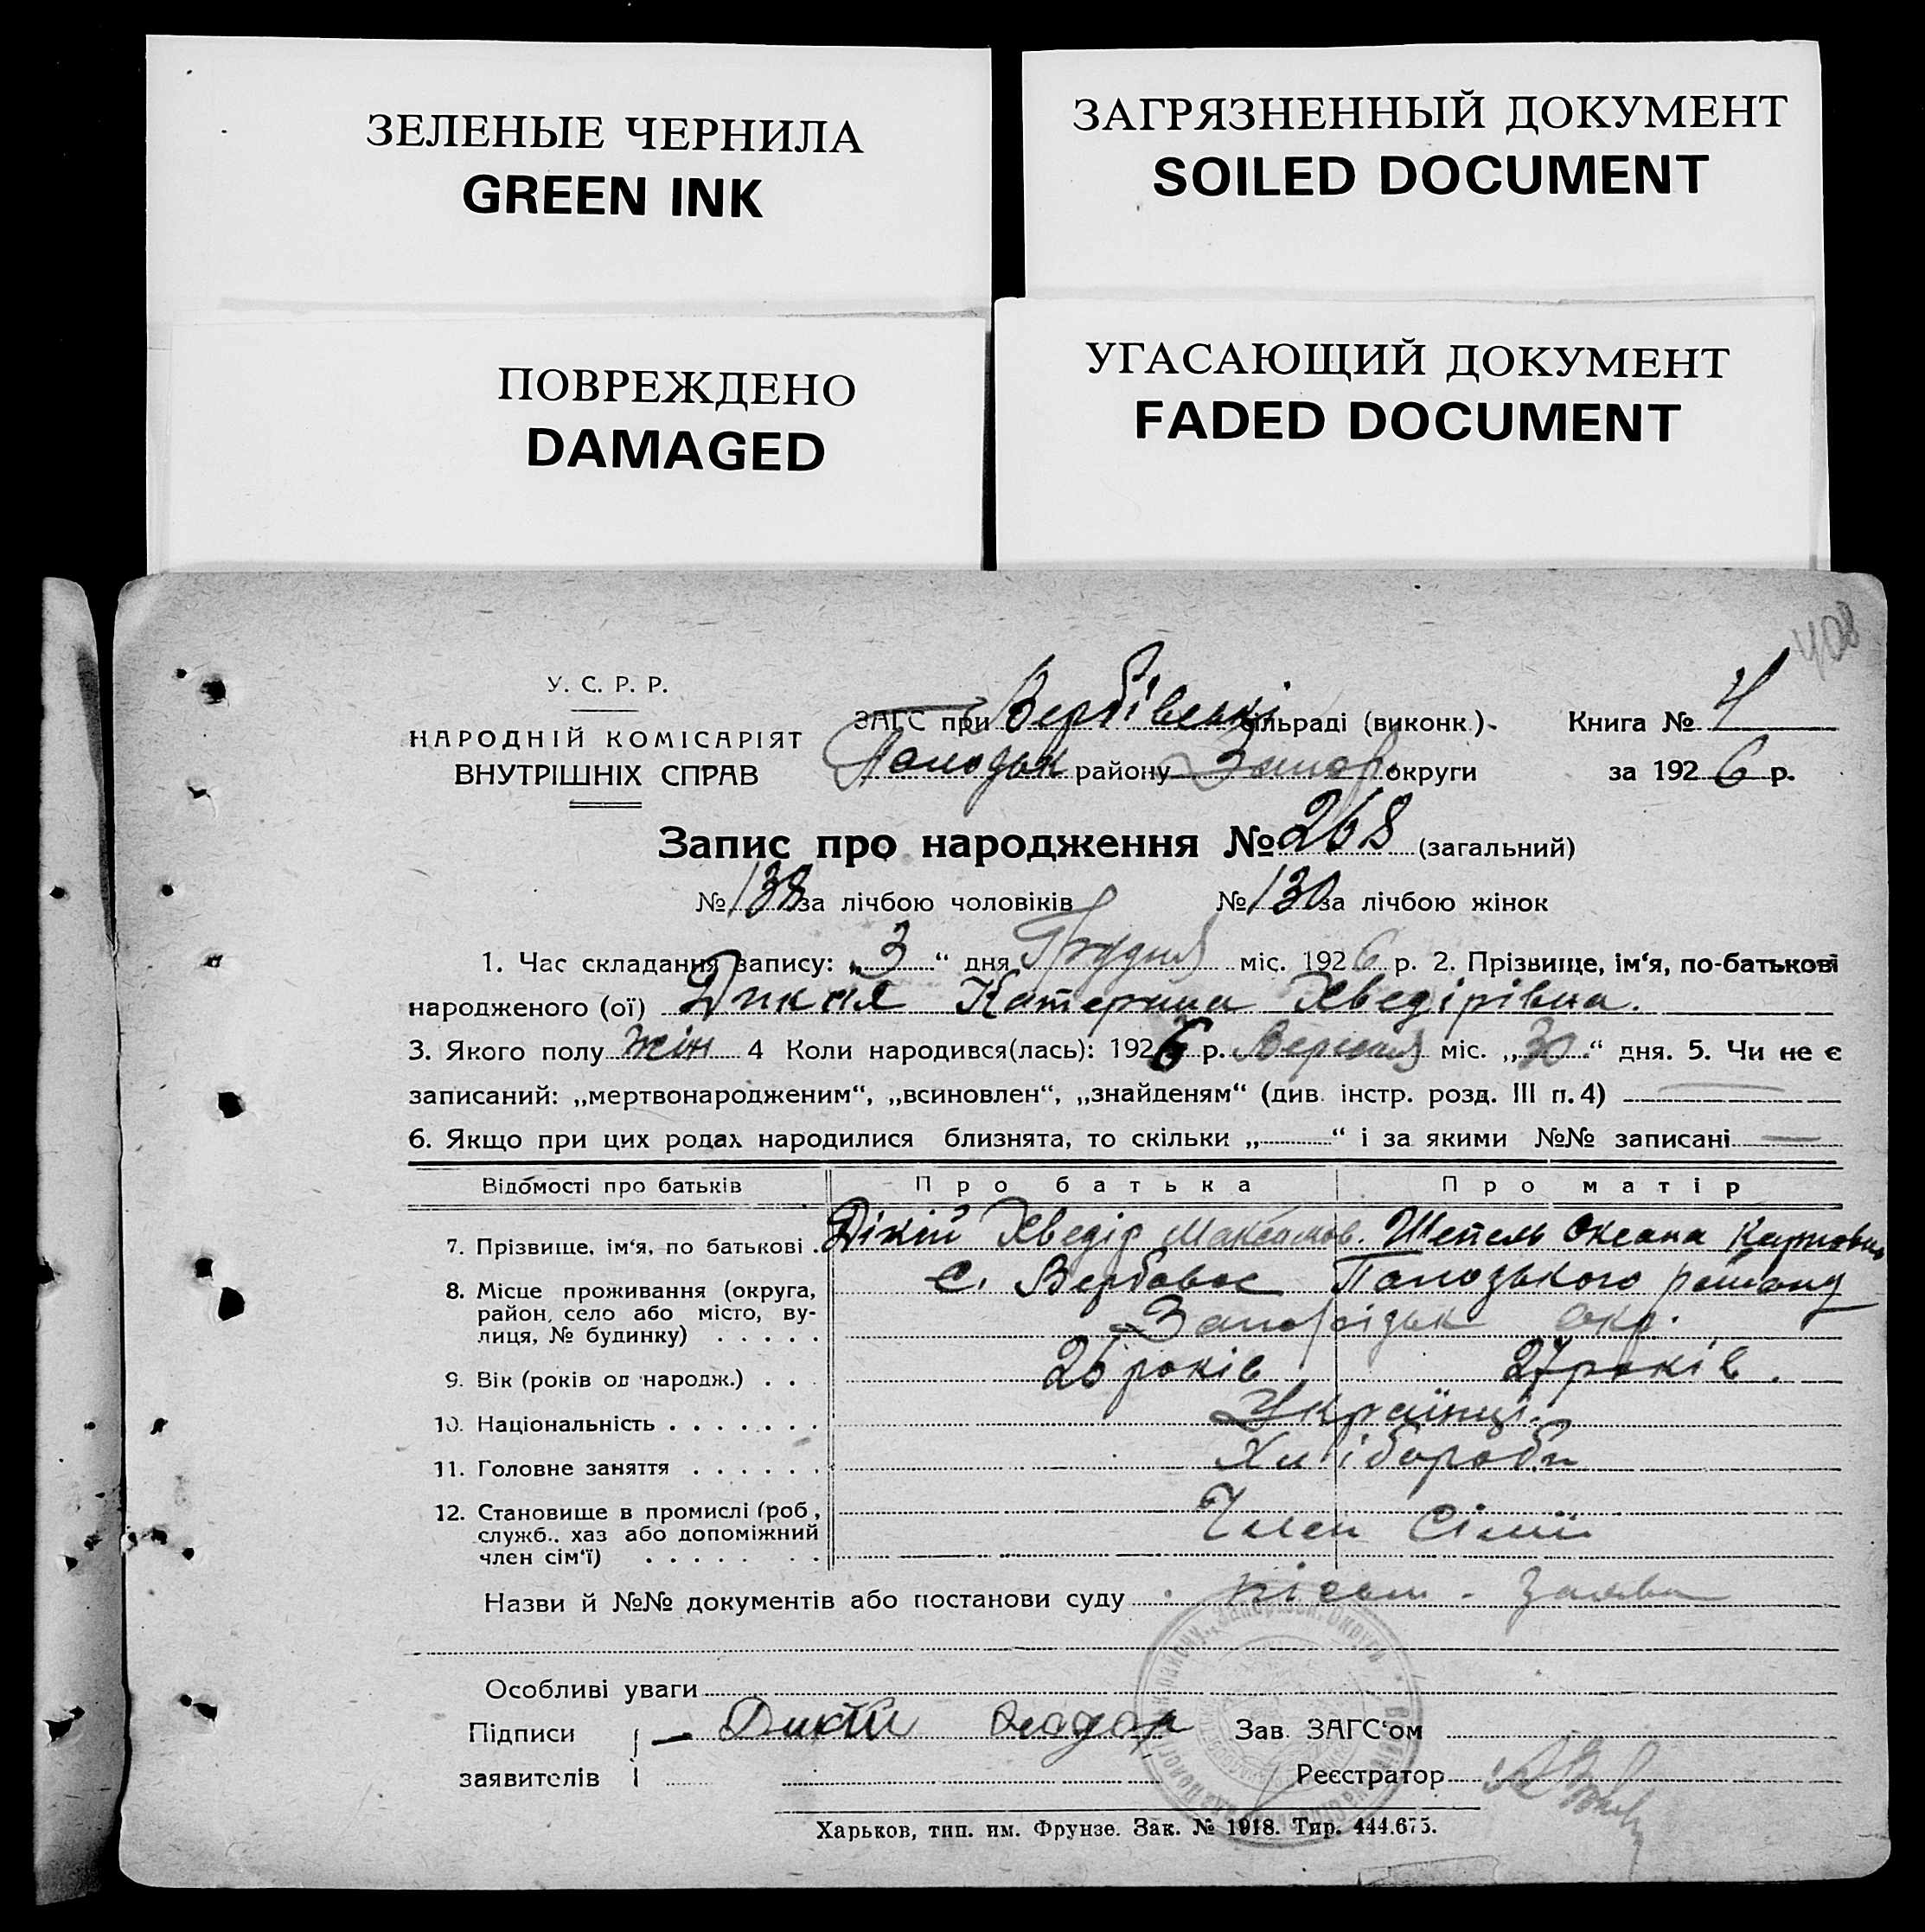 ЗЕЛЕНЫЕ ЧЕРНИЛА
GREEN INK
ЗАГРЯЗНЕННЫЙ ДОКУМЕНТ
SOILED DOCUMENT
ПОВРЕЖДЕНО
DAMAGED
УГАСАЮЩИЙ ДОКУМЕНТ
FADED DOCUMENT
408
У. С. Р. Р.
НАРОДНІЙ КОМІСАРІЯТ
ВНУТРІШНІХ СПРАВ
ЗАГС при Вербівські сільраді (виконк.) Книга № 4
району Запор. округи за 1926 р.
Запис про народження № 268 (загальний)
№ 138 за лічбою чоловіків № 130 за лічбою жінок
1. Час складання запису: „3“ дня Грудня міс. 1926 р. 2. Прізвище, ім‘я, по-батькові
народженого (ої) Дикая Катерина Хведірівна.
3. Якого полу жін 4 Коли народився(лась): 1926 р. Вересня міс. „30“ дня. 5. Чи не є
записаний: „мертвонародженим“, „всиновлен“, „знайденям“ (див. інстр. розд. III п. 4) —
6. Якщо при цих родах народилися близнята, то скільки „ “ і за якими №№ записані —
Відомості про батьків Про батька Про матір
7. Прізвище, ім‘я, по батькові . Дікій Хведір Максимов. Шепель Оксана Карповна
8. Місце проживання (округа, район, село або місто, вулиця, № будинку) . . . . . с. Вербове Пологзького району
Запорізьк окр.
9. Вік (років од народж.) . . . 26 років 27 років.
10. Національність . . . . . . . Українці.
11. Головне заняття . . . . . . Хліборобы
12. Становище в промислі (роб, служб., хаз або допоміжний член сім‘ї) . . . . . . . Член Сімії
Назви й №№ документів або постанови суду заява
Особливі уваги
Підписи Дикий Федор Зав. ЗАГС‘ом
заявителів Реєстратор
Харьков, тип. им. Фрунзе. Зак. № 1918. Тир. 444.675.